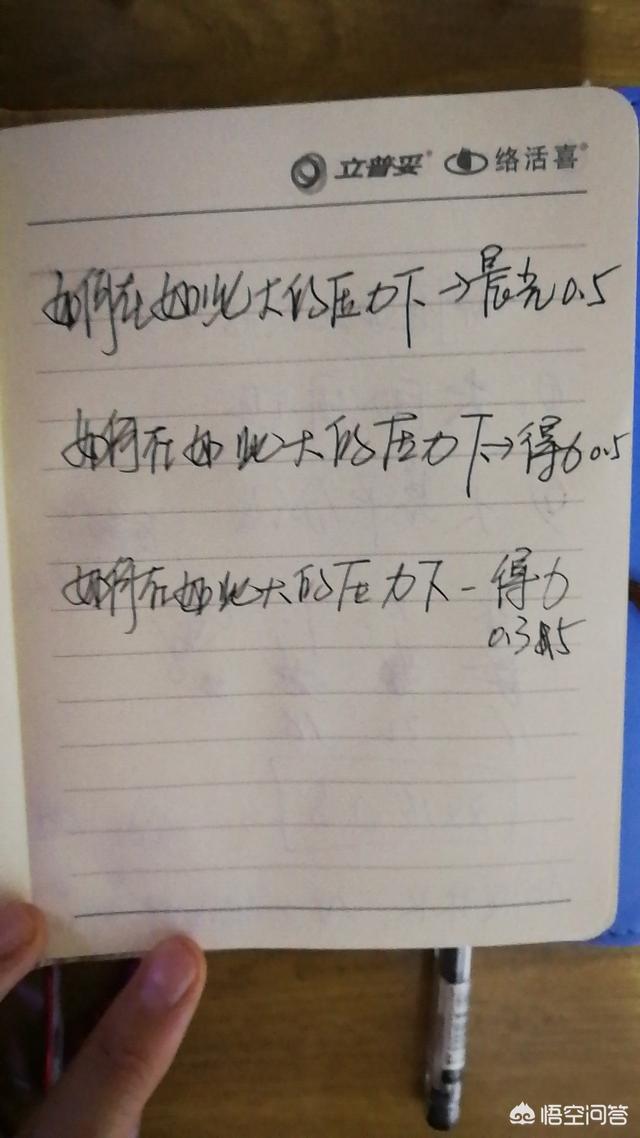 立普妥® 络活喜®
如何在如此大的压力下→晨光0.5
如何在如此大的压力下→得力0.5
如何在如此大的压力下-得力
0.35
悟空问答